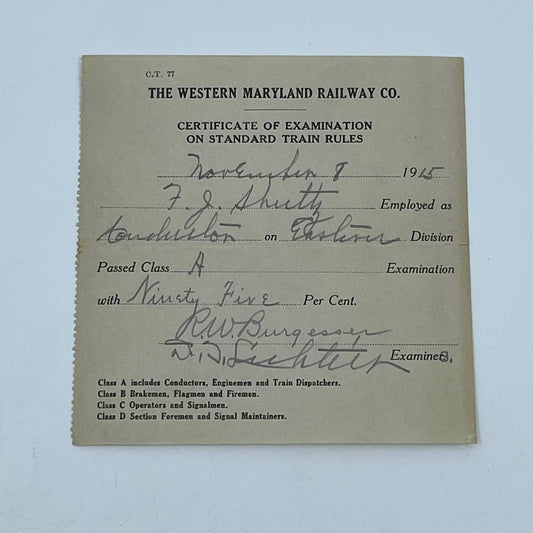 C.T. 77
THE WESTERN MARYLAND RAILWAY CO.
CERTIFICATE OF EXAMINATION
ON STANDARD TRAIN RULES
November 8 1915
F. J. Shutty Employed as
Conductor on Eastern Division
Passed Class A Examination
with Ninety Five Per Cent.
R.W. Burgesser
D. D. Examiners,
Class A includes Conductors, Enginemen and Train Dispatchers.
Class B Brakemen, Flagmen and Firemen.
Class C Operators and Signalmen.
Class D Section Foremen and Signal Maintainers.